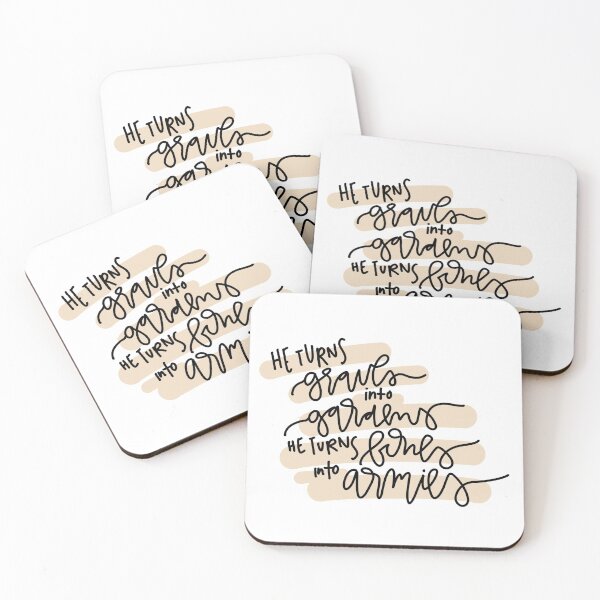 HE TURNS
graves
into
HE TURNS
graves
into
gardens
HE TURNS bones
into
HE TURNS
graves
into
gardens
HE TURNS bones
into
HE TURNS
graves
into
gardens
HE TURNS bones
into armies